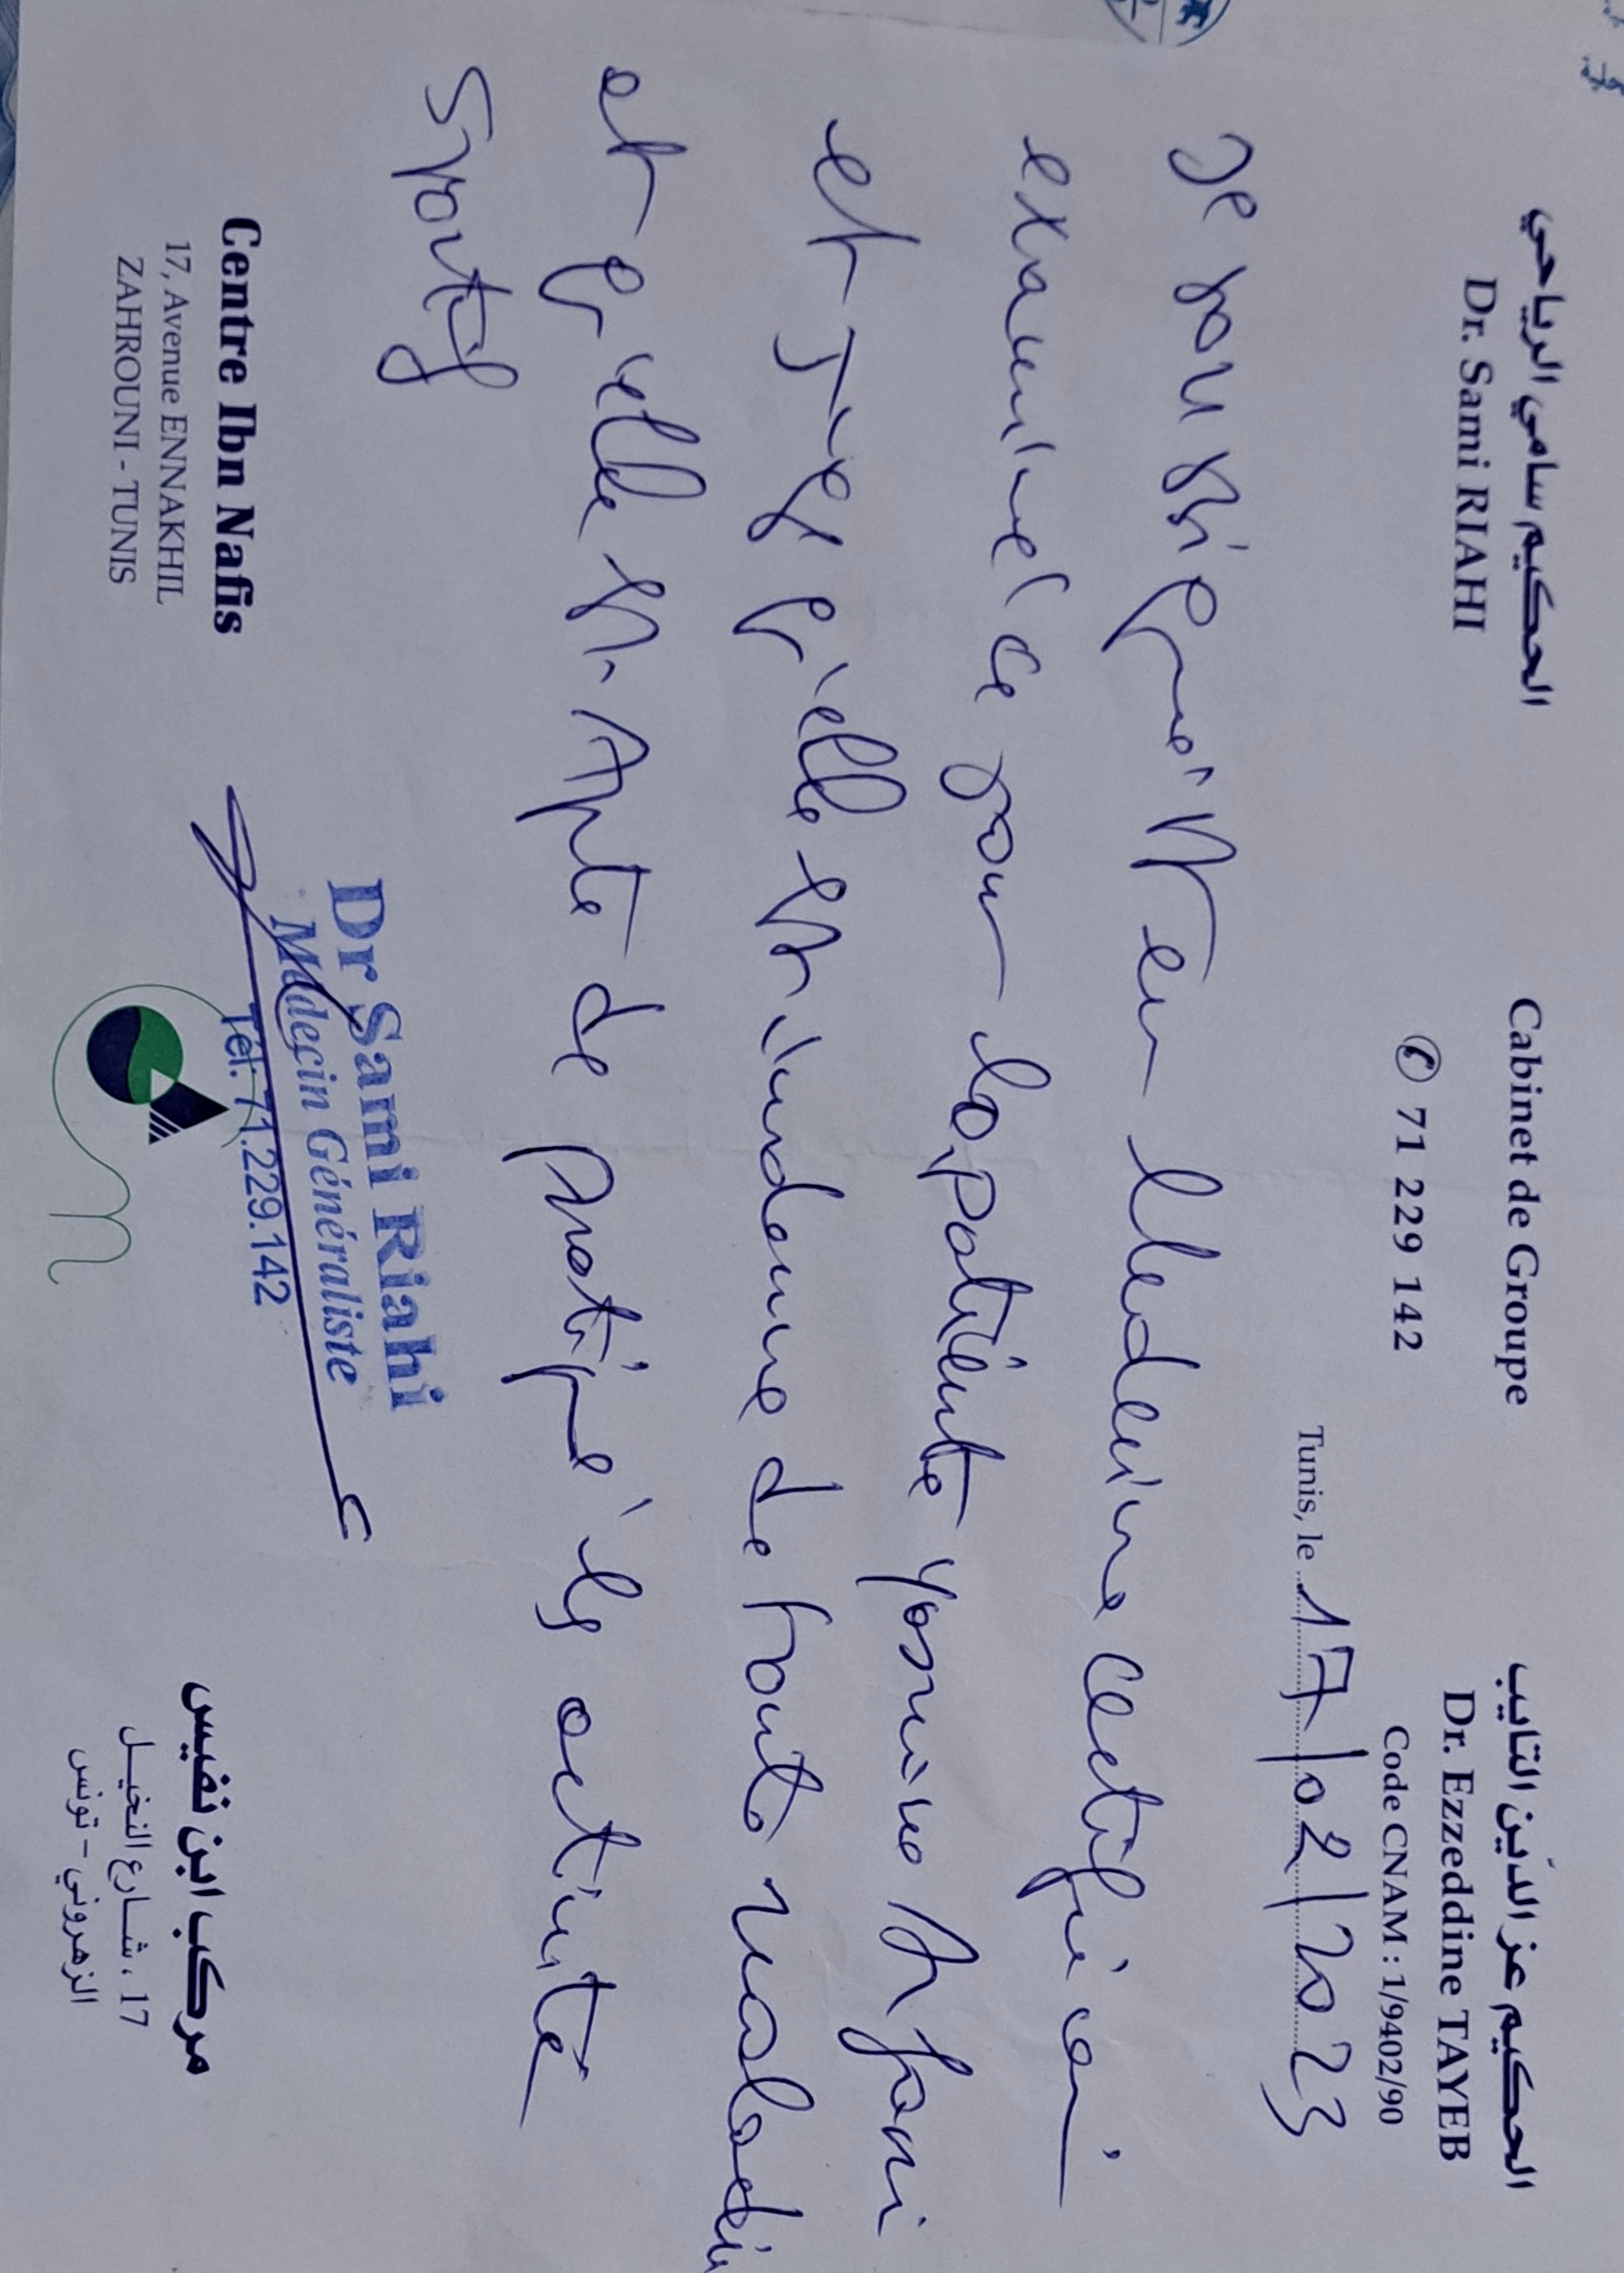 الحكيم سامي الرياحي
Dr. Sami RIAHI
Cabinet de Groupe
✆ 71 229 142
الحكيم عز الدّين التايب
Dr. Ezzeddine TAYEB
Code CNAM : 1/9402/90
Tunis, le 17/02/2023
Je soussigné Dr en Medecine certifie avoir
examiné ce jour la patiente Yasmine
et Juge qu'elle est indemne de toute maladie
et qu'elle est Apte de pratiqué les activité
sportif
Dr Sami Riahi
Médecin Généraliste
Tél: 71.229.142
Centre Ibn Nafis
17, Avenue ENNAKHIL
ZAHROUNI - TUNIS
مركب ابن نفيس
17، شارع النخيل
الزهروني - تونس